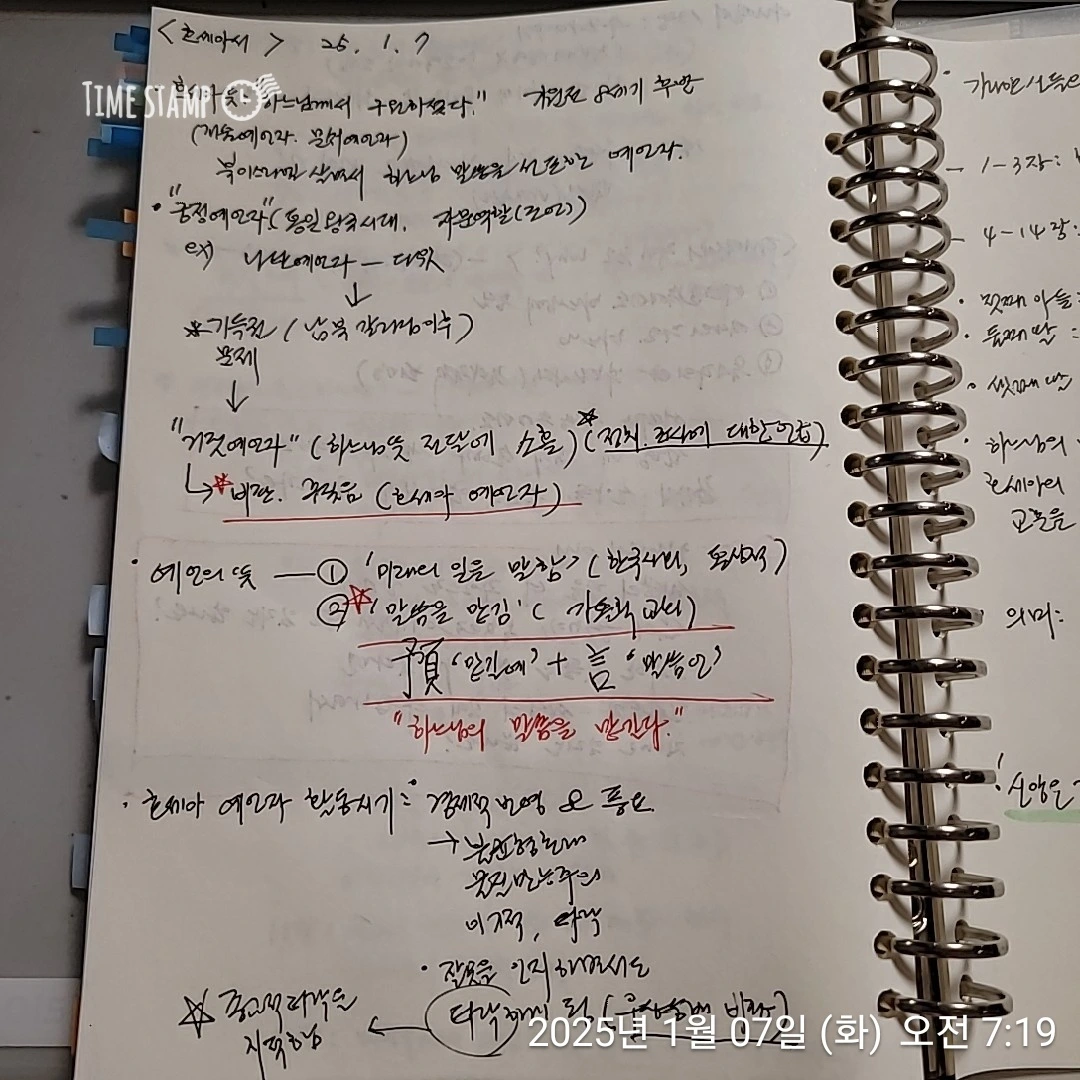 <호세아서> 25. 1. 7
TIME STAMP
뜻 "하느님께서 구원하셨다." 기원전 8세기 후반
(기술예언자. 문서예언자)
북이스라엘 살면서 하느님 말씀을 선포하는 예언자.
• "궁정예언자" (통일왕국시대, 자문역할(조언))
ex) 나탄예언자 — 다윗
↓
기득권 (남북 갈라짐이후)
문제
↓
"거짓예언자" (하느님뜻 전달에 소홀) (정치. 대한
비판. 꾸짖음 (호세아 예언자)
• 예언의 뜻 — ① '미래의 일을 말함' (한국사회, 통상적)
② '말씀을 맡김' (가톨릭 교회)
預 '맡길예' + 言 '말씀언'
"하느님의 말씀을 맡긴다."
• 호세아 예언자 활동시기 : 경제적 번영 풍요
→
물질만능주의
이기적, 타락
• 잘못을 인지하면서도
타락하게 됨
종교적 타락을
지적함
가나안
- 1-3장:
- 4-14장:
• 첫째 아들:
• 둘째 딸:
• 셋째
• 하느님의
호세아의
고통을
의미:
신앙은
2025년 1월 07일 (화) 오전 7:19